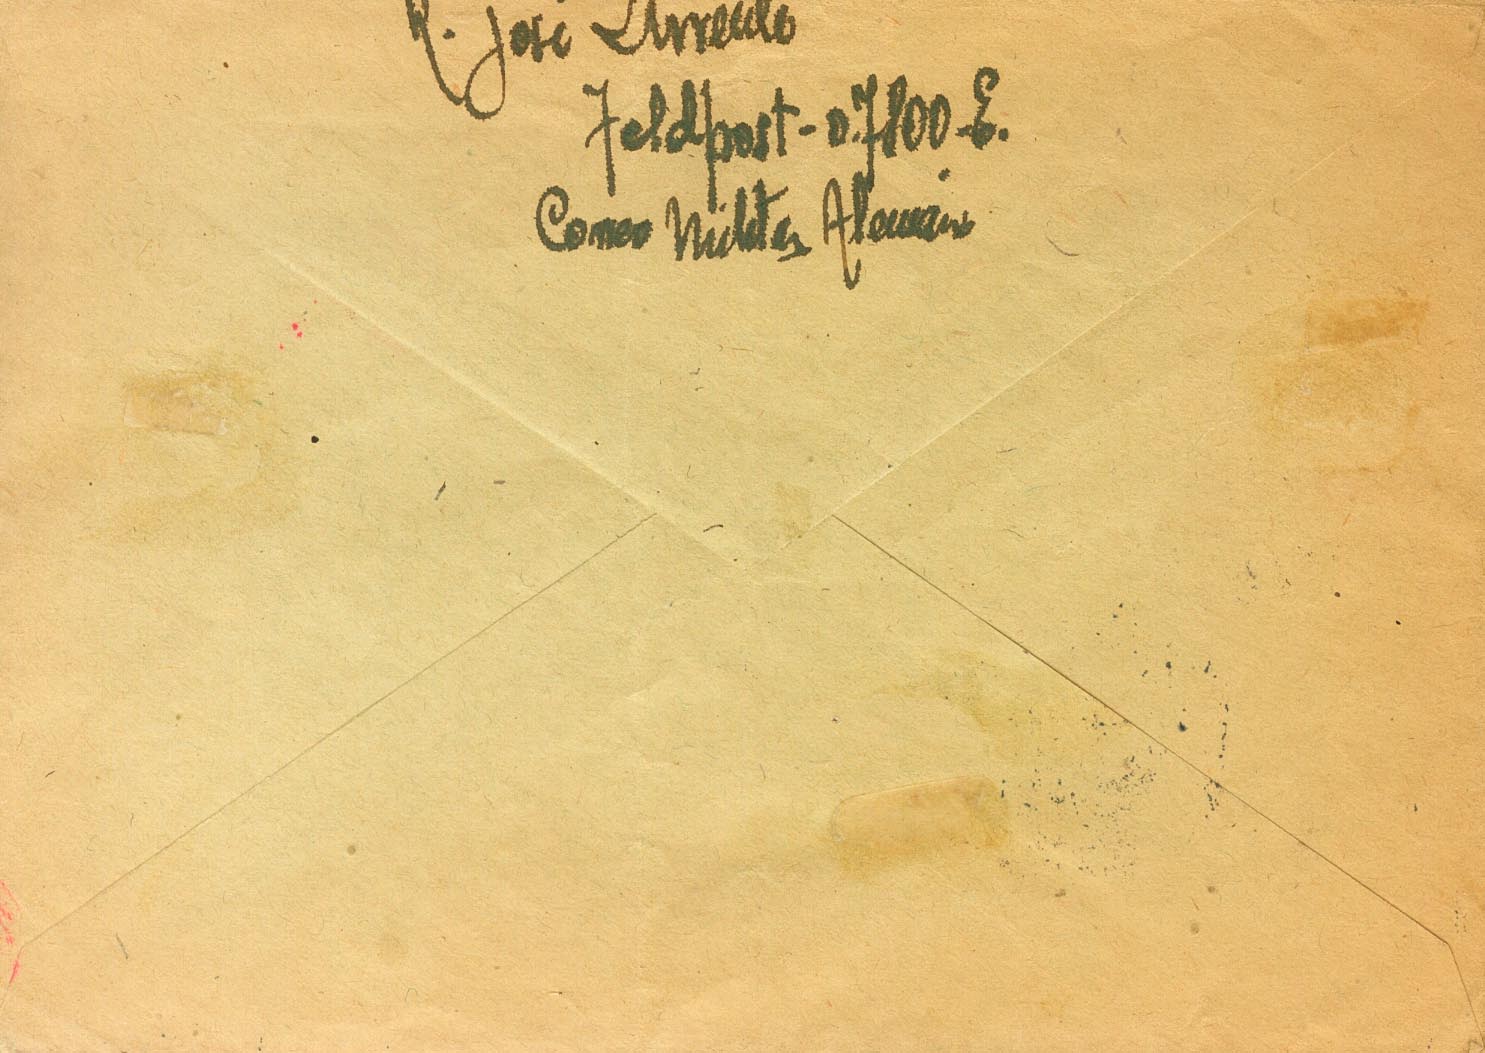 R. José
Feldpost-0.7100-E.
Correo Militar Alemán